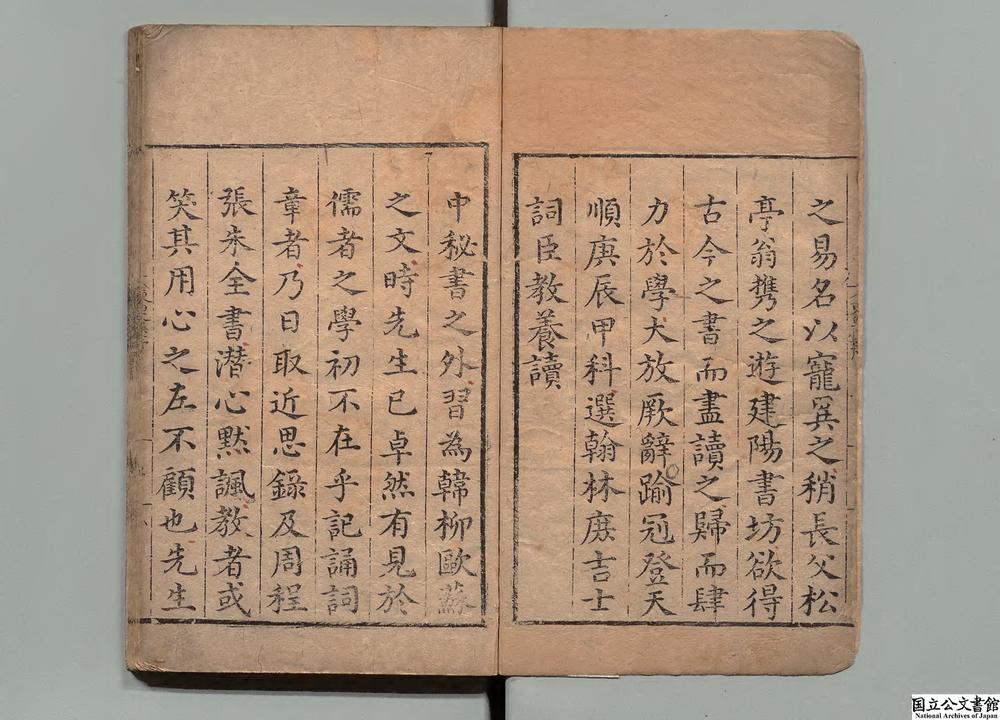 之易名以寵異之稍長父松
亭翁携之遊建陽書坊欲得
古今之書而盡讀之歸而肆
力於學大放厥辭踰冠登天
順庚辰甲科選翰林庶吉士
詞臣教養讀
中秘書之外習為韓柳歐蘇
之文時先生已卓然有見於
儒者之學初不在乎記誦詞
章者乃日取近思錄及周程
張朱全書潜心默諷教者或
笑其用心之左不顧也先生
国立公文書館
National Archives of Japan